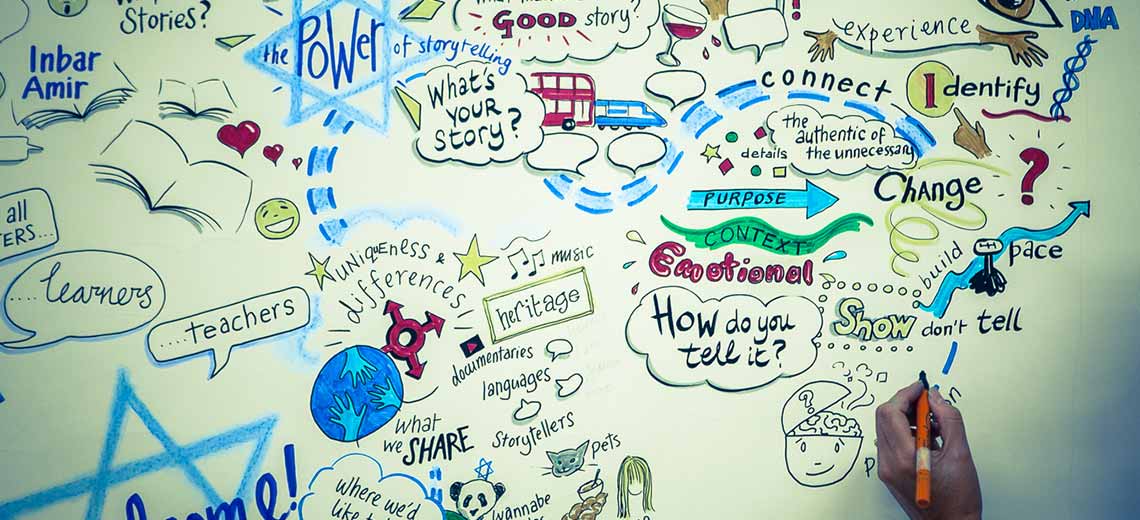 Stories?
the POWER of storytelling
GOOD story?
Inbar
Amir
What's
YOUR
story?
experience
DNA
connect
Identify
the
authentic of
the unnecessary
details
PURPOSE
CONTEXT
Emotional
CHANGE
?
build
pace
HOW do you
tell it?
SHOW don't tell
all
....learners
....teachers
UNIQUENESS &
differences
MUSIC
heritage
documentaries
languages
Storytellers
what
we SHARE
pets
wannabe
where we'd